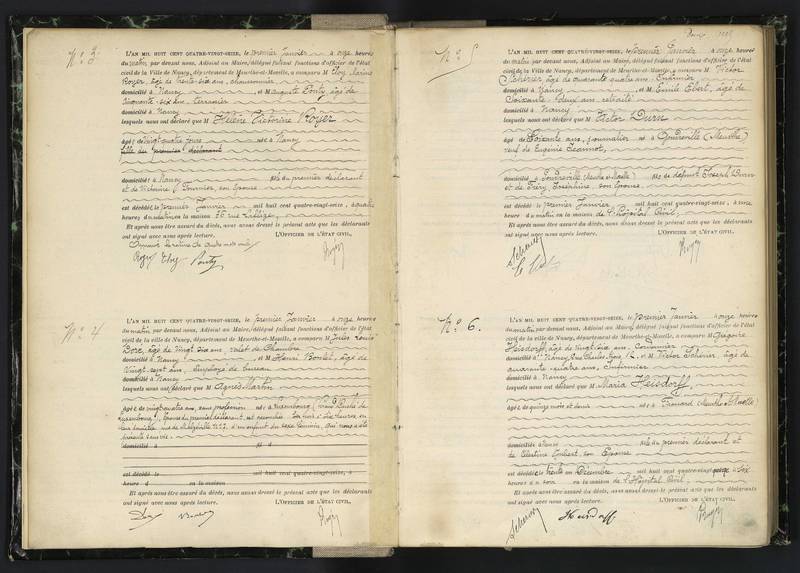 N.º 3
L'AN MIL HUIT CENT QUATRE-VINGT-SEIZE, le premier Janvier à onze heures
du matin par devant nous, Adjoint au Maire, délégué faisant fonctions d'officier de l'état
civil de la Ville de Nancy, département de Meurthe-et-Moselle, a comparu M Eloy Marius
Royer, âgé de trente six ans,
domicilié à Nancy et M Auguste Ponty, âgé de
cinquante-six ans
domicilié à Nancy
lesquels nous ont déclaré que M Hélène Victorine Royer
âgée de vingt quatre jours née à Nancy
fille du premier déclarant
domiciliée à Nancy fille du premier déclarant
et de Victorine Fournier, son épouse
est décédée le premier Janvier mil huit cent quatre-vingt-seize, à quatre
heures du matin en la maison 26 rue
Et après nous être assuré du décès, nous avons dressé le présent acte que les déclarants
ont signé avec nous après lecture. L'OFFICIER DE L'ÉTAT CIVIL,
Royer Eloy Ponty
N.º 4
L'AN MIL HUIT CENT QUATRE-VINGT-SEIZE, le premier Janvier à onze heures
du matin par devant nous, Adjoint au Maire, délégué faisant fonctions d'officier de l'état
civil de la ville de Nancy, département de Meurthe-et-Moselle, a comparu M Jules Louis
âgé de vingt six ans, valet de chambre
domicilié à Nancy et M Henri âgé de
vingt sept ans, employé de bureau
domicilié à Nancy
lesquels nous ont déclaré que M Agnès Martin
âgée de vingt quatre ans, sans profession née à Luxembourg (Grand Duché de
Luxembourg)
d'un enfant du sexe féminin, qui nous a été
présenté sans vie.
domicilié à fils d
est décédé le mil huit cent quatre-vingt-seize, à
heure d en la maison
Et après nous être assuré du décès, nous avons dressé le présent acte que les déclarants
ont signé avec nous après lecture. L'OFFICIER DE L'ÉTAT CIVIL,
N.º 5
L'AN MIL HUIT CENT QUATRE-VINGT-SEIZE, le premier Janvier à onze heures
du matin par devant nous, Adjoint au Maire, délégué faisant fonctions d'officier de l'état
civil de la Ville de Nancy, département de Meurthe-et-Moselle, a comparu M Victor
Scherier, âgé de quarante quatre ans, infirmier
domicilié à Nancy et M Emile Ebert, âgé de
soixante-deux ans, retraité
domicilié à Nancy
lesquels nous ont déclaré que M Victor Durn
âgé de soixante ans, journalier né à
veuf de Eugénie Jeannot,
domicilié à (Meurthe et Moselle) fils de défunt Joseph Durn
et de Joséphine, son épouse
est décédé le premier Janvier mil huit cent quatre-vingt-seize, à onze
heures du matin en la maison de l'hôpital Civil,
Et après nous être assuré du décès, nous avons dressé le présent acte que les déclarants
ont signé avec nous après lecture. L'OFFICIER DE L'ÉTAT CIVIL,
N.º 6.
L'AN MIL HUIT CENT QUATRE-VINGT-SEIZE, le premier Janvier à onze heures
du matin par devant nous, Adjoint au Maire, délégué faisant fonctions d'officier de l'état
civil de la ville de Nancy, département de Meurthe-et-Moselle, a comparu M Grégoire
Heisdorff, âgé de vingt six ans,
domicilié à Nancy, et M Victor Scherier, âgé de
quarante-quatre ans, infirmier
domicilié à Nancy
lesquels nous ont déclaré que M Maria Heisdorff,
âgée de quinze mois et demi née à Frouard (Meurthe & Moselle)
domiciliée fille du premier déclarant et
de Célestine son épouse
est décédée le trente un Décembre mil huit cent quatre-vingt-quinze à six
heures du soir en la maison de l'Hôpital Civil,
Et après nous être assuré du décès, nous avons dressé le présent acte que les déclarants
ont signé avec nous après lecture. L'OFFICIER DE L'ÉTAT CIVIL,
Heisdorff